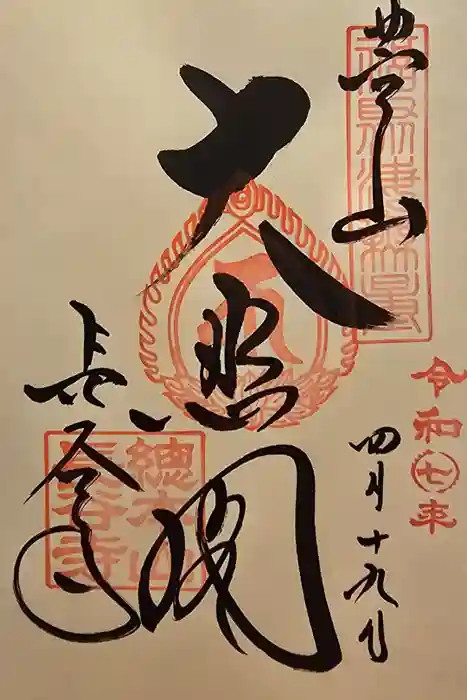 豊山
福聚海無量
令和七年
四月十九日
大悲閣
長谷寺
總本山
長谷寺